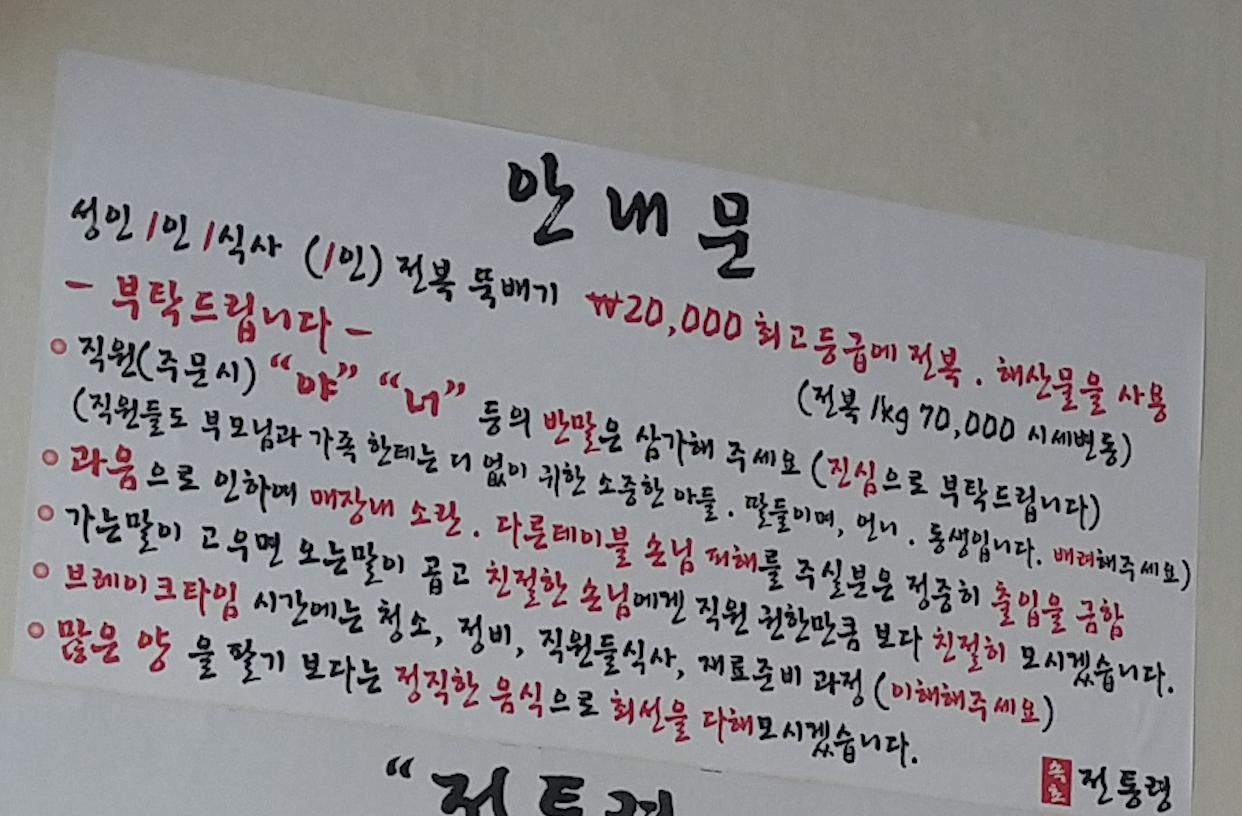 안내문
성인 1인 1식사 (1인) 전복 뚝배기 ₩20,000 최고등급에 전복. 해산물을 사용
(전복 1kg 70,000 시세변동)
- 부탁드립니다 -
직원(주문시) "야" "너" 등의 반말은 삼가해 주세요 (진심으로 부탁드립니다)
(직원들도 부모님과 가족 한테는 더 없이 귀한 소중한 아들. 딸들이며, 언니. 동생입니다. 배려해주세요)
과음으로 인하여 매장내 소란. 다른테이블 손님 피해를 주실분은 정중히 출입을 금함
가는말이 고우면 오는말이 곱고 친절한 손님에겐 직원 권한만큼 보다 친절히 모시겠습니다.
브레이크타임 시간에는 청소, 정비, 직원들식사, 재료준비 과정 (이해해주세요)
많은 양 을 팔기 보다는 정직한 음식으로 최선을 다해모시겠습니다.
속초 전통령
"전통령